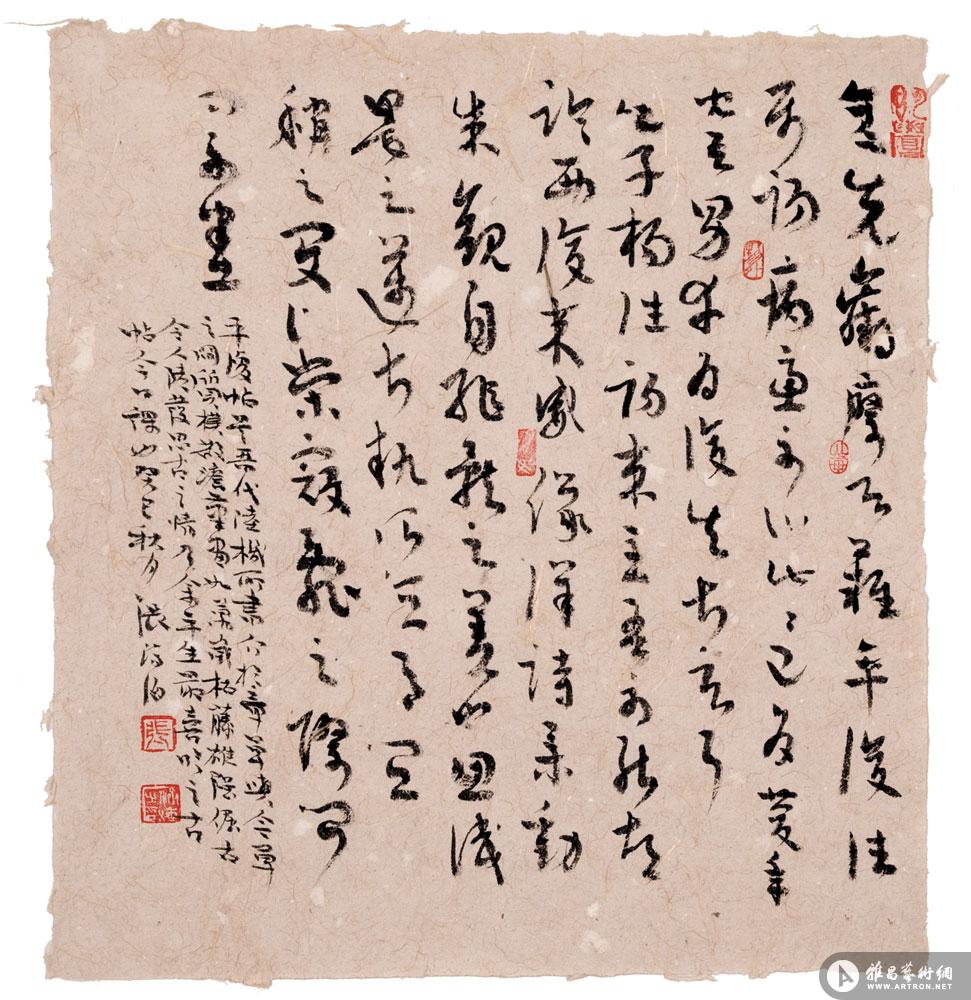 彦先羸瘵恐難平復往
屬初病慮不止此此已為慶承
使唯男幸為復失前憂耳
吳子楊往初來主吾不能盡
臨西復來威儀詳跱舉動
成觀自軀體之美也思識
量之邁前執所恒有宜
稱之夏伯榮寇亂之際聞
問不悉
平復帖是晉代陸機所書介於章草與今草
之間所 如萬歲枯藤雄强倔古
令人陡發思古之情乃余平生最喜臨之古
帖今日課也癸巳秋月 張 海
雅昌藝術網
WWW.ARTRON.NET